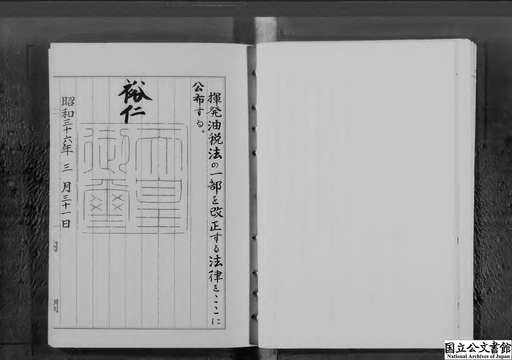 揮発油税法の一部を改正する法律をここに
公布する。
裕仁
天皇御璽
昭和三十六年三月三十一日
国立公文書館
National Archives of Japan